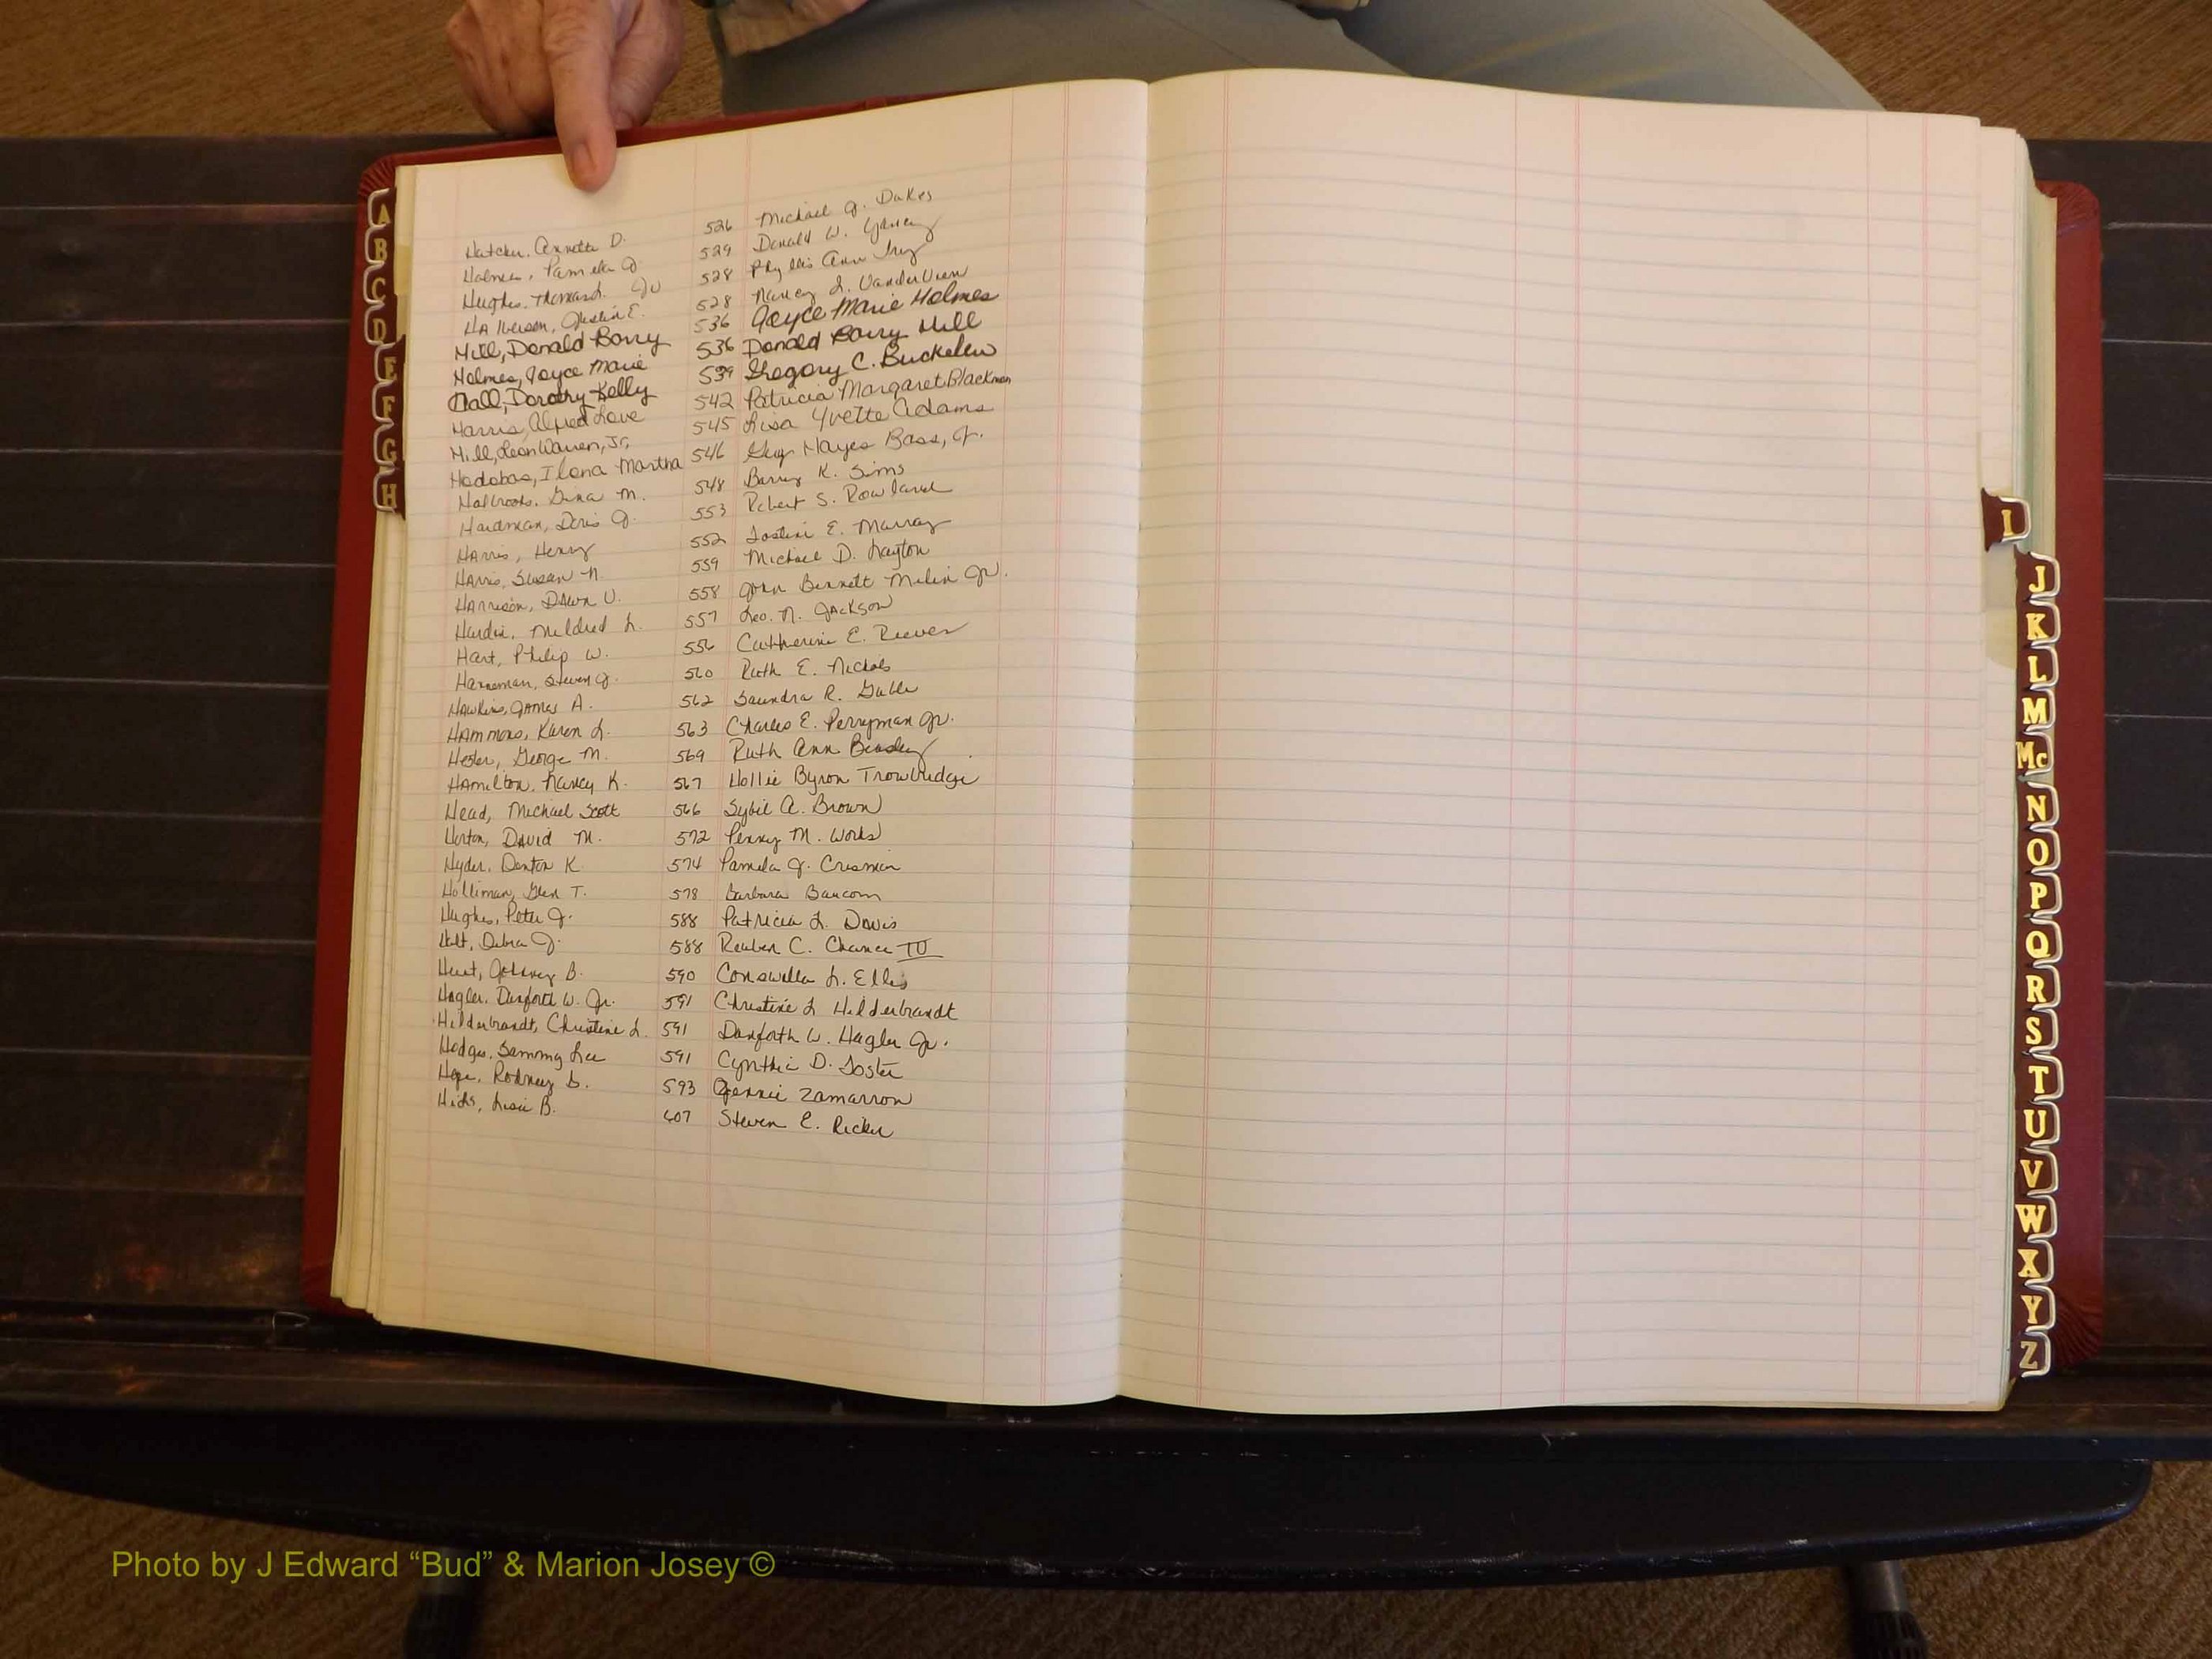 Hatcher, Annette D. 526 Michael J. Dukes
Holmes, Pamela J. 529 Donald W. Yancey
Hughes, Thomas L. Jr 528 Phyllis Ann Ivey
Halverson, Justin E. 528 Nancy L. VanderVeen
Hill, Donald Barry 536 Joyce Marie Holmes
Holmes, Joyce Marie 536 Donald Barry Hill
Hall, Dorothy Kelly 539 Gregory C. Buckelew
Harris, Alfred Love 542 Patricia Margaret Blackmon
Hill, Leon Warren, Jr. 545 Lisa Yvette Adams
Hodobas, Ilona Martha 546 Guy Hayes Bass, Jr.
Holbrooks, Gina M. 548 Barry K. Sims
Hardman, Doris J. 553 Robert S. Rowland
Harris, Henry 552 E. Murray
Harris, Susan N. 559 Michael D. Layton
Harrison, Dawn U. 558 John Bennett Jr.
Hardin, Mildred L. 557 Leo. N. Jackson
Hart, Philip W. 556 Catherine E. Reeves
Hanneman, Steven J. 560 Ruth E. Nichols
Hawkins, James A. 562 Saundra R. Gable
Hammons, Karen L. 563 Charles E. Perryman Jr.
Hester, George M. 569 Ruth Ann Beasley
Hamilton, Nancy K. 567 Hollie Byron Trowbridge
Head, Michael Scott 566 Sybil A. Brown
Horton, David M. 572 Penny M. Works
Hyder, Denton K 574 Pamela J. Crisman
Holliman, Glen T. 578 Barbara Baucom
Hughes, Peter J. 588 Patricia L. Davis
Holt, Debra J. 588 Reuben C. Chance III
Hunt, Johnny B. 590 Conswella L. Ellis
Hagler, Danforth W. Jr. 591 Christine L Hilderbrandt
Hilderbrandt, Christine L. 591 Danforth W. Hagler Jr.
Hodges, Sammy Lee 591 Cynthia D. Foster
Hope, Rodney D. 593 Jennie Zamarron
Hicks, Lisa B. 607 Steven E. Ricker
A
B
C
D
E
F
G
H
I
J
K
L
M
Mc
N
O
P
Q
R
S
T
U
V
W
X
Y
Z
Photo by J Edward “Bud” & Marion Josey ©